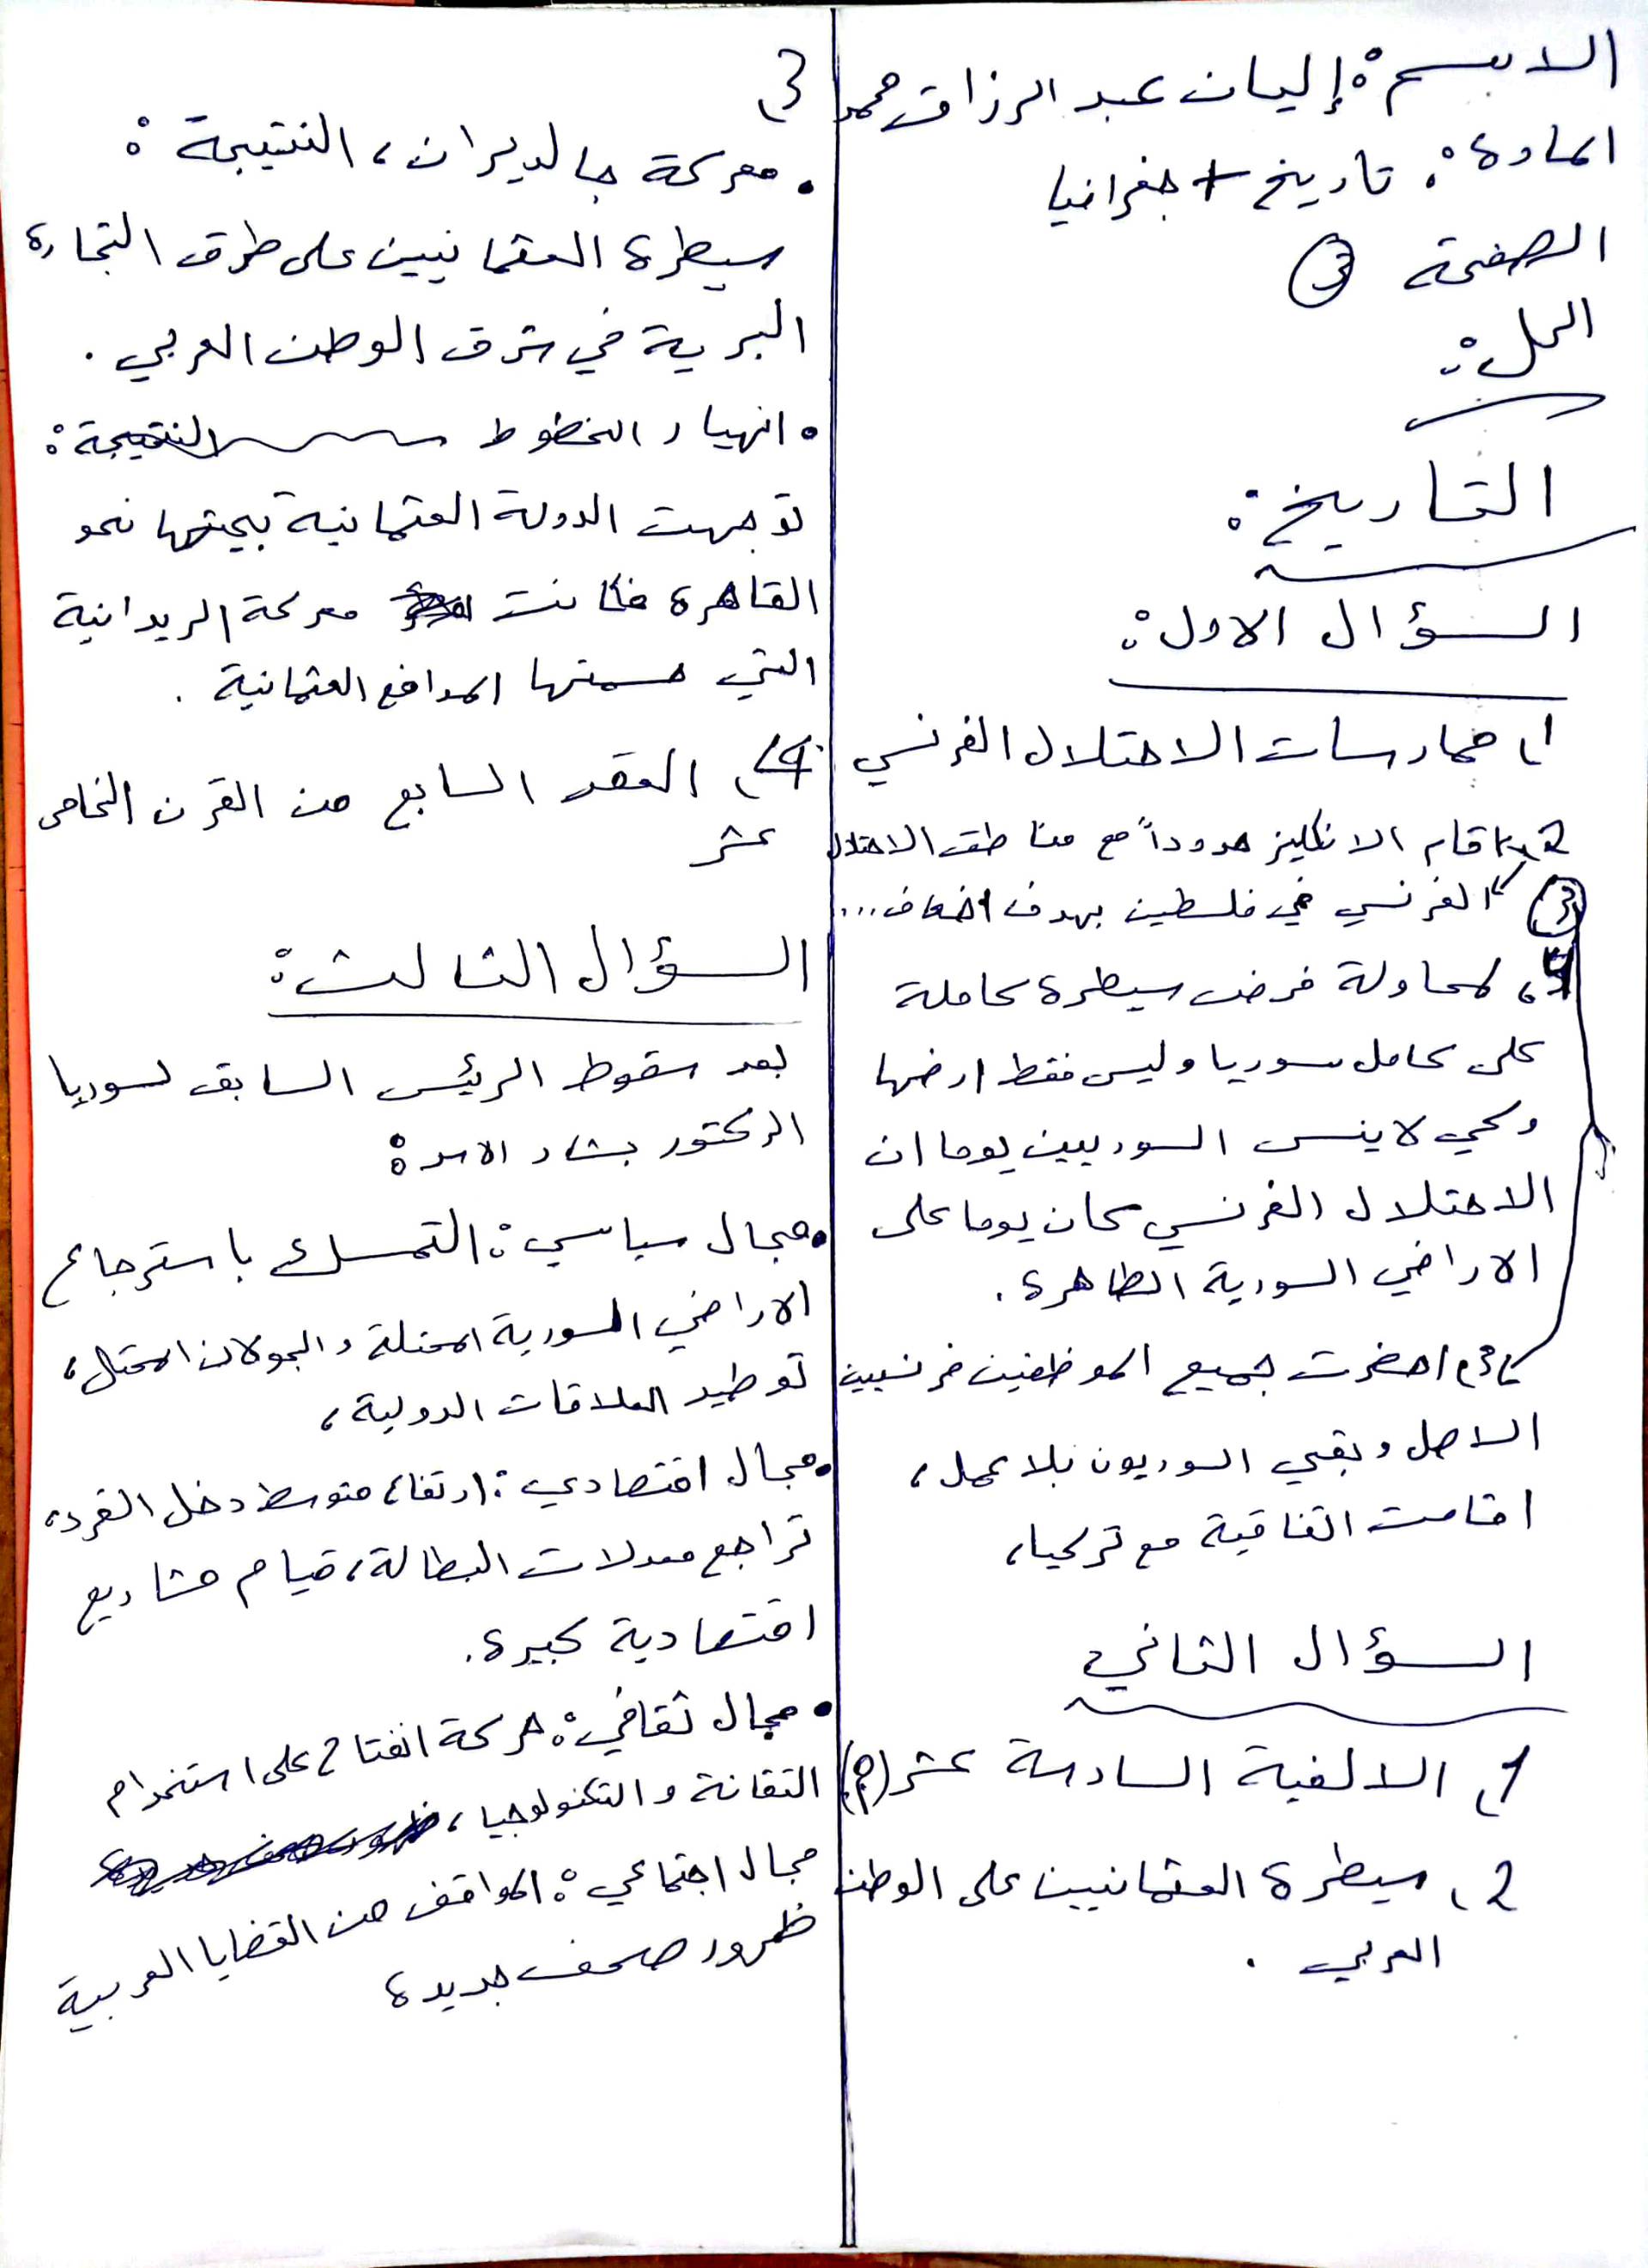 الاسم: إليان عبد الرزاق محمد
المادة: تاريخ + جغرافيا
الصفحة 3
الحل:
التاريخ:
السؤال الاول:
1) ممارسات الاحتلال الفرنسي
2) اقام الانكليز حدوداً مع مناطق الاحتلال
الفرنسي في فلسطين بهدف اضعاف...
4) لمحاولة فرض سيطرة كاملة
على كامل سوريا وليس فقط ارضها
وكي لا ينسى السوريين يوما ان
الاحتلال الفرنسي كان يوما على
الاراضي السورية الطاهرة.
3) احضرت جميع الموظفين فرنسيين
الاصل وبقي السوريون بلا عمل،
اقامت اتفاقية مع تركيا،
السؤال الثاني
1) الالفية السادسة عشر (م)
2) سيطرة العثمانيين على الوطن
العربي.
3)
• معركة جالديران، النتيجة:
سيطرة العثمانيين على طرق التجارة
البرية في شرق الوطن العربي.
• انهيار الخطوط النتيجة:
توجهت الدولة العثمانية بجيشها نحو
القاهرة فكانت معركة الريدانية
التي حسمتها المدافع العثمانية.
4) العقد السابع من القرن الخامس
عشر
السؤال الثالث:
بعد سقوط الرئيس السابق لسوريا
الدكتور بشار الاسد:
• مجال سياسي: التمسك باسترجاع
الاراضي السورية المحتلة والجولان المحتل،
توطيد العلاقات الدولية،
• مجال اقتصادي: ارتفاع متوسط دخل الفرد،
تراجع معدلات البطالة، قيام مشاريع
اقتصادية كبيرة.
• مجال ثقافي: حركة انفتاح على استخدام
التقانة والتكنولوجيا،
مجال اجتماعي: المواقف من القضايا العربية
ظهور صحف جديدة